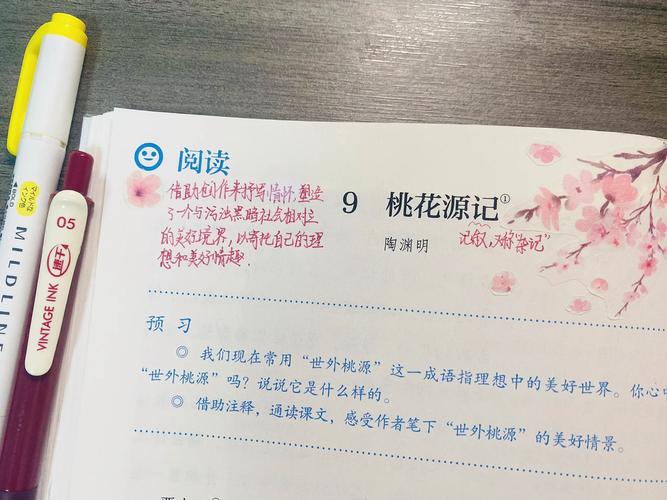 阅读
借助创作来抒写情怀,塑造
了一个与污浊黑暗社会相对立
的美好境界,以寄托自己的理
想和美好情趣.
9 桃花源记①
陶渊明
记叙,又称"杂记"
预 习
◎ 我们现在常用“世外桃源”这一成语指理想中的美好世界。你心中
“世外桃源”吗?说说它是什么样的。
◎ 借助注释,通读课文,感受作者笔下“世外桃源”的美好情景。
MILDLINE
05
VINTAGE INK